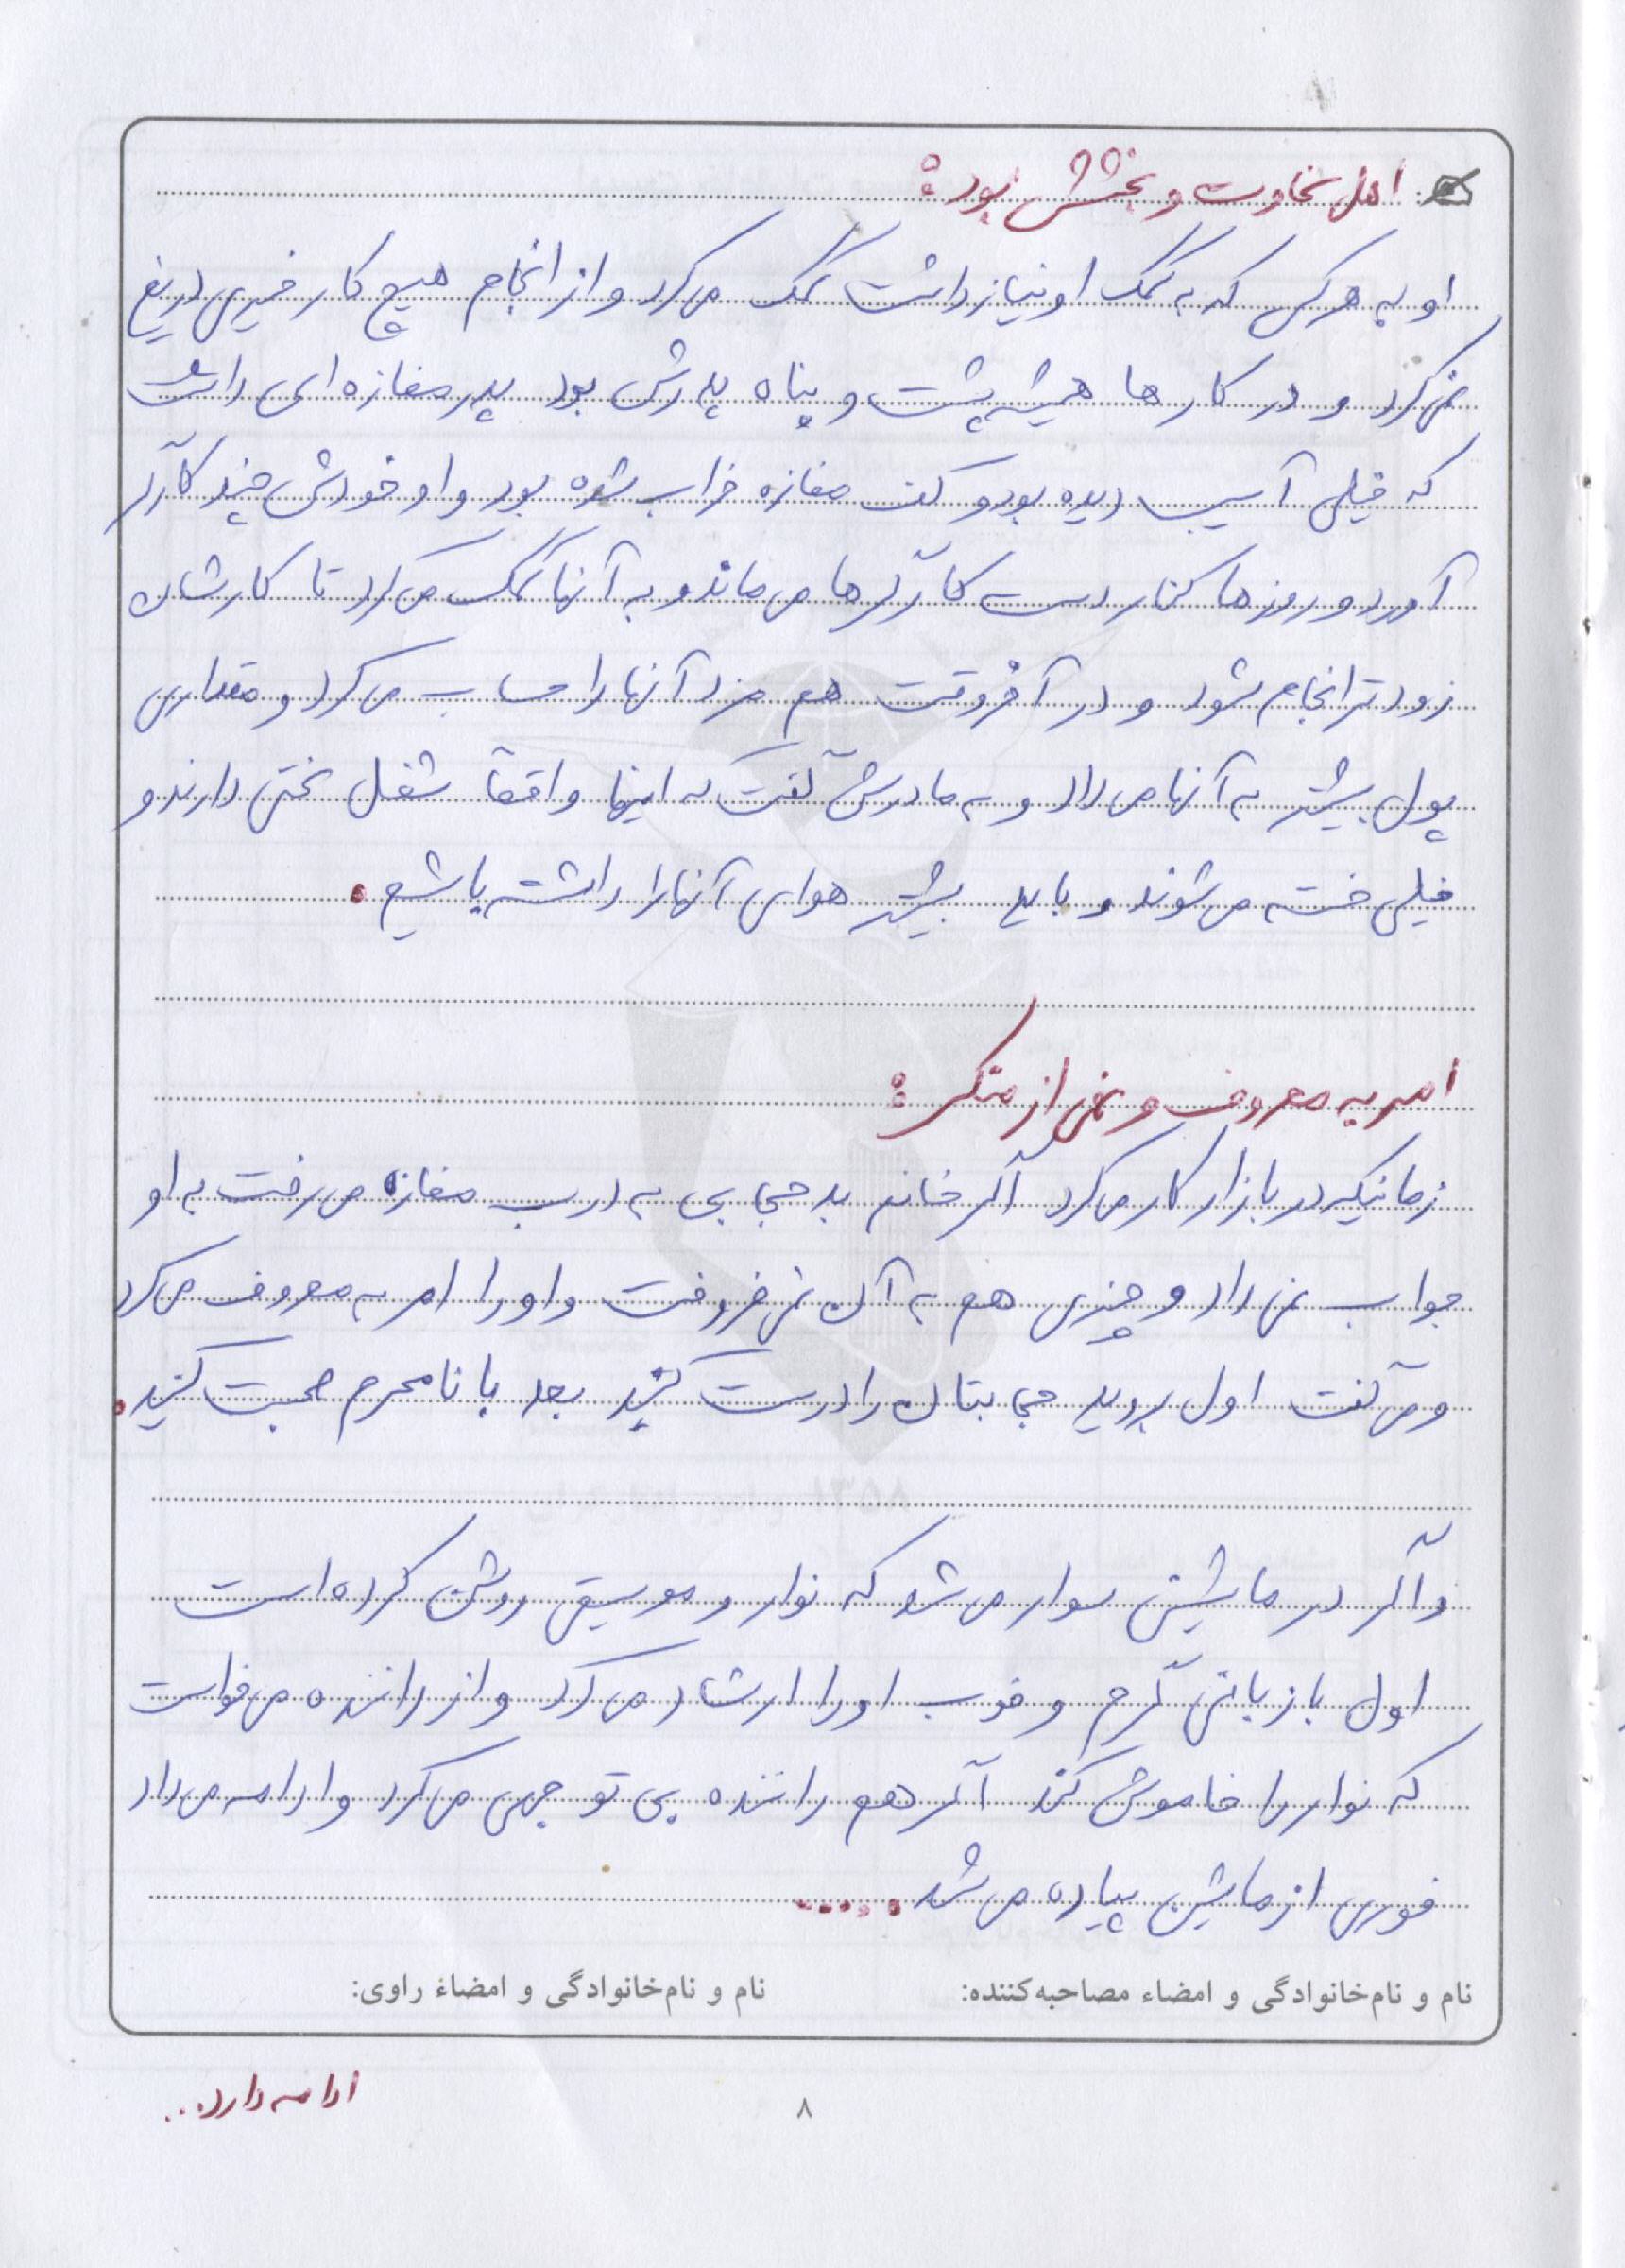 اهل سخاوت و بخشش بود:
او به هرکس که به کمک او نیاز داشت کمک می‌کرد و از انجام هیچ کار خیری دریغ
نمی‌کرد و در کارها همیشه پشت و پناه پدرش بود پدر مغازه‌ای داشت
که خیلی آسیب دیده بود و کف مغازه خراب شده بود و او خودش چند کارگر
آورد و روزها کنار دست کارگرها می‌ماند و به آنها کمک می‌کرد تا کارشان
زودتر انجام شود و در آخر وقت هم مزد آنها را حساب می‌کرد و مقداری
پول بیشتر به آنها می‌داد و به مادرش گفت که اینها واقعاً شغل سختی دارند و
خیلی خسته می‌شوند و باید بیشتر هوای آنها را داشته باشیم.
امر به معروف و نهی از منکر:
زمانیکه در بازار کار می‌کرد اگر خانم بد حجابی به درب مغازه می‌رفت به او
جواب نمی‌داد و چیزی هم به آن نمی‌فروخت و او را امر به معروف می‌کرد
و می‌گفت اول بروید حجابتان را درست کنید بعد با نامحرم صحبت کنید.
و اگر در ماشینی سوار می‌شد که نوار و موسیقی روشن کرده است
اول با زبانی گرم و خوب او را ارشاد می‌کرد و از راننده می‌خواست
که نوار را خاموش کند اگر هم راننده بی توجهی می‌کرد و ادامه می‌داد
فوری از ماشین پیاده می‌شد.....
نام و نام‌خانوادگی و امضاء مصاحبه‌کننده: نام و نام‌خانوادگی و امضاء راوی:
۸
ادامه دارد...